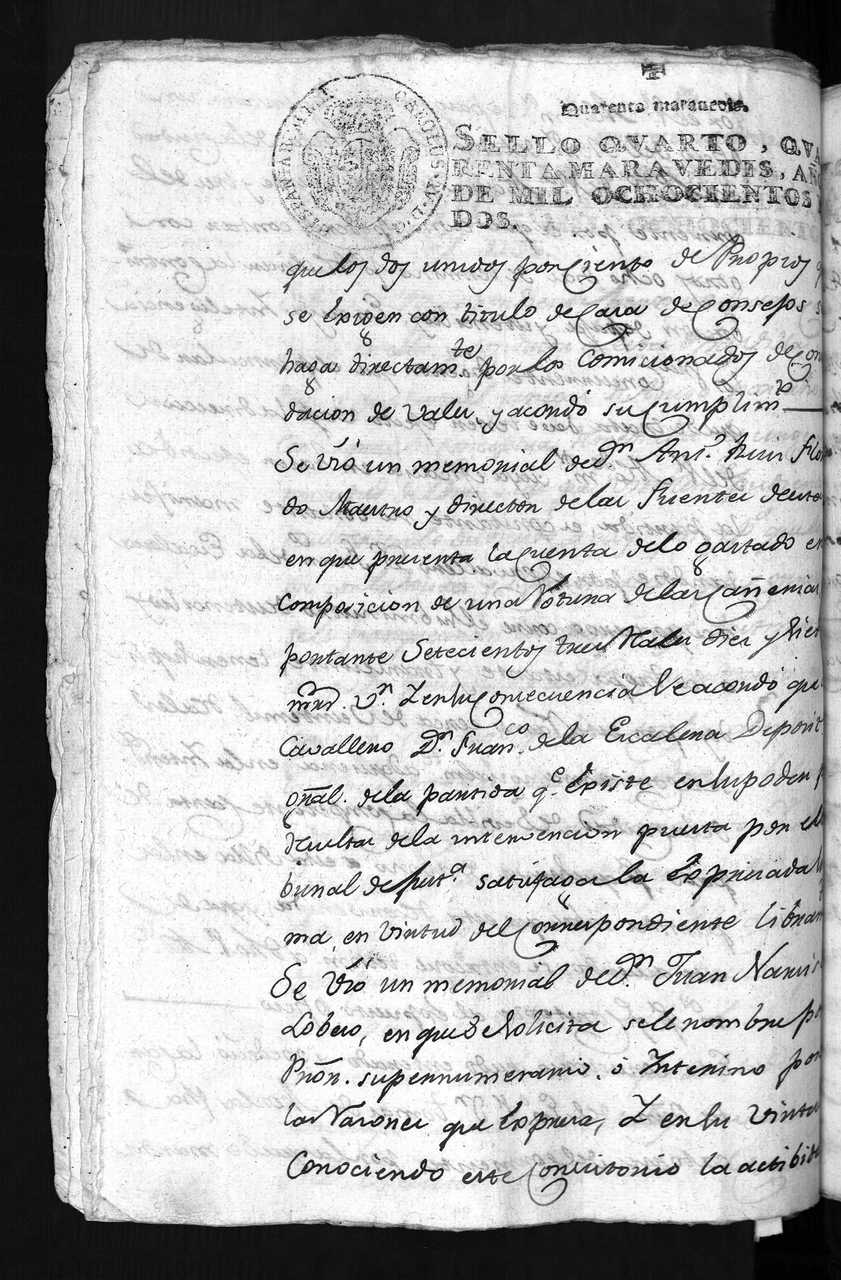 Quarenta maravedis.
SELLO QVARTO, QVA
RENTA MARAVEDIS, AÑ
DE MIL OCHOCIENTOS
DOS.
que los dos unidos por Ciento de Propios q
se exigen con titulo de Cara de Consejos s
haga directam.te por los Comicionados de Con
dacion de Vales, y acordó su Cumplim.to
Se vió un memorial de D.n Ant.o Ruis Flo
do Maestro y director de las Fuentes de esta
en que presenta la Cuenta de lo gastado en
composicion de una Rotura de las Cañerias
portante Setecientos tres Reales dies y siete
mrs. v.n Y en su Consecuencia se acordó que
Cavallero D.n Fran.co de la Escalera Deposit
gral. de la partida q.e existe en su poder
de la intervencion puesta por el
bunal de Just.a satisfaga la expresada
ma, en virtud del Correspondiente libram
Se vió un memorial de D.n Juan Narcis
Lobero, en que Solicita se le nombre p
Pror. supernumerario. o Interino por
las Rasones que expresa, Y en su virtu
Conociendo este Consistorio la actibid